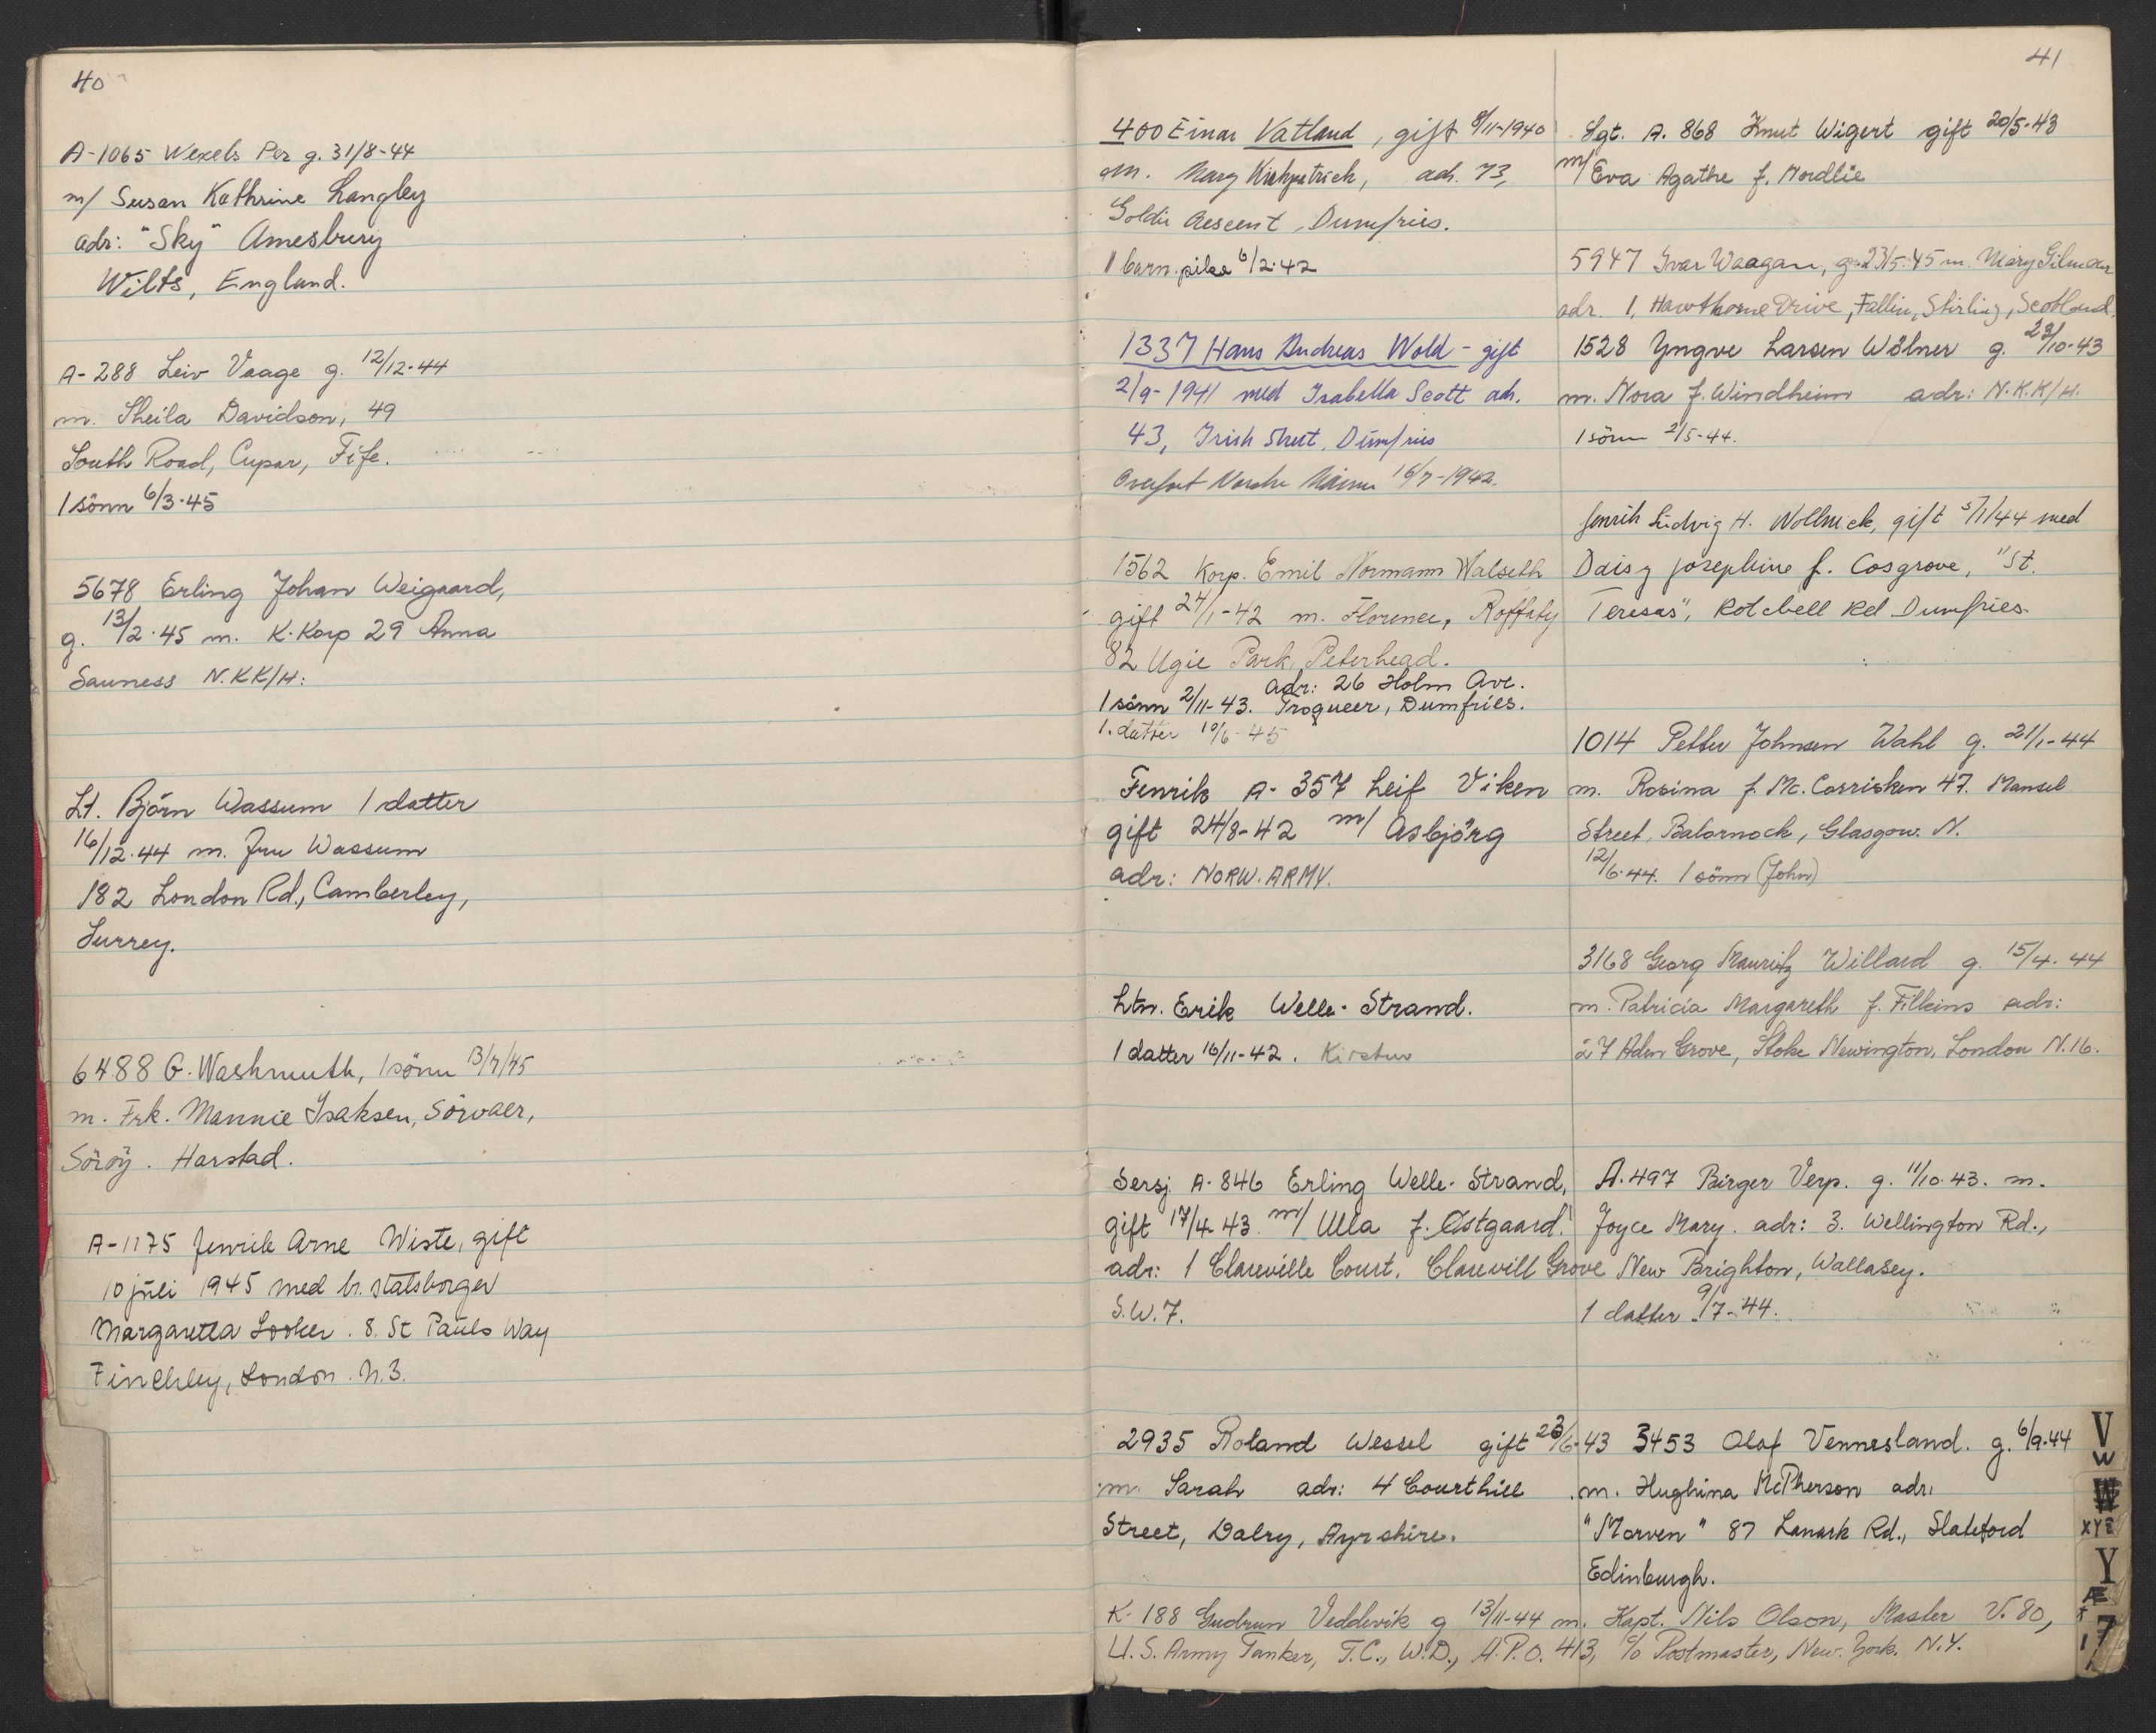 40
A-1065 Wexels Per g. 31/8-44
m/ Susan Kathrine Langley
adr: "Sky" Amesbury
Wilts, England.
A-288 Leiv Vaage g. 12/12-44
m. Sheila Davidson, 49
South Road, Cupar, Fife.
1 sönn 6/3-45
5678 Erling Johan Weigaard,
g. 13/2-45 m. K.Korp 29 Anna
Sauness N.KK/H:
Lt. Björn Wassum 1 datter
16/12-44 m. Fru Wassum
182 London Rd., Camberley,
Surrey.
6488 G. Washmuth, 1 sönn 13/7/45
m. Frk. Mannie Isaksen, Sörvaer,
Söröy. Harstad.
A-1175 Fenrik Arne Wiste, gift
10 juli 1945 med br. statsborger
Margaretta Looker. 8. St Pauls Way
Finchley, London. N.3.
41
400 Einar Vatland, gift 8/11-1940
m. Mary Kirkpatrick, adr. 73,
Goldie Crescent, Dumfries.
1 barn. pike 6/2-42
1337 Hans Andreas Wold - gift
2/9-1941 med Isabella Scott adr.
43, Irish Street, Dumfries
Overfört Norske Marine 16/7-1942.
1562 Korp. Emil Normann Walseth
gift 24/1-42 m. Florence, Roffely
82 Ugie Park, Peterhead.
adr: 26 Holm Ave.
1 sönn 2/11-43. Troqueer, Dumfries.
1. datter 10/6-45
Fenrik A-357 Leif Viken
gift 24/8-42 m/ Asbjörg
adr: NORW. ARMY.
Ltn. Erik Welle-Strand.
1 datter 16/11-42. Kirsten
Sersj. A-846 Erling Welle-Strand,
gift 17/4-43 m/ Ulla f. Östgaard.
adr: 1 Clareville Court, Clarevill Grove
S.W.7.
2935 Roland Wessel gift 23/6-43
m. Sarah adr: 4 Courthill
Street, Dalry, Ayrshire.
Sgt. A. 868 Knut Wigert gift 20/5-43
m/ Eva Agathe f. Nordlie
5947 Ivar Waagan, g. 23/5-45 m. Mary Gilmour
adr. 1, Hawthorne Drive, Fallin, Stirling, Scotland.
1528 Yngve Larsen Wölner g. 23/10-43
m. Nora f. Windheim adr: N.K.K/H.
1 sönn 2/5-44.
Fenrik Ludvig H. Wollnick, gift 5/1/44 med
Daisy Josephine f. Cosgrove, "St.
Teresas", Rotchell Rd Dumfries.
1014 Petter Johnsen Wahl g. 21/1-44
m. Rosina f. Mc. Corrisken 47. Mansel
Street, Balornock, Glasgow. N.
12/6-44. 1 sönn (John)
3168 Georg Mauritz Willard g. 15/4-44
m. Patricia Margareth f. Filkins adr:
27 Aden Grove, Stoke Newington, London N.16.
A.497 Birger Verp. g. 11/10-43. m.
Joyce Mary. adr: 3. Wellington Rd.,
New Brighton, Wallasey.
1 datter 9/7-44.
3453 Olaf Vennesland. g. 6/9-44
m. Hughina McPherson adr:
"Morven" 87 Lanark Rd., Slateford
Edinburgh.
K-188 Gudrun Veddevik g 13/11-44 m. Kapt. Nils Olson, Master V.80,
U.S. Army Tanker, T.C., W.D., A.P.O. 413, c/o Postmaster, New York. N.Y.
V
W
W
XYZ
Y
Æ